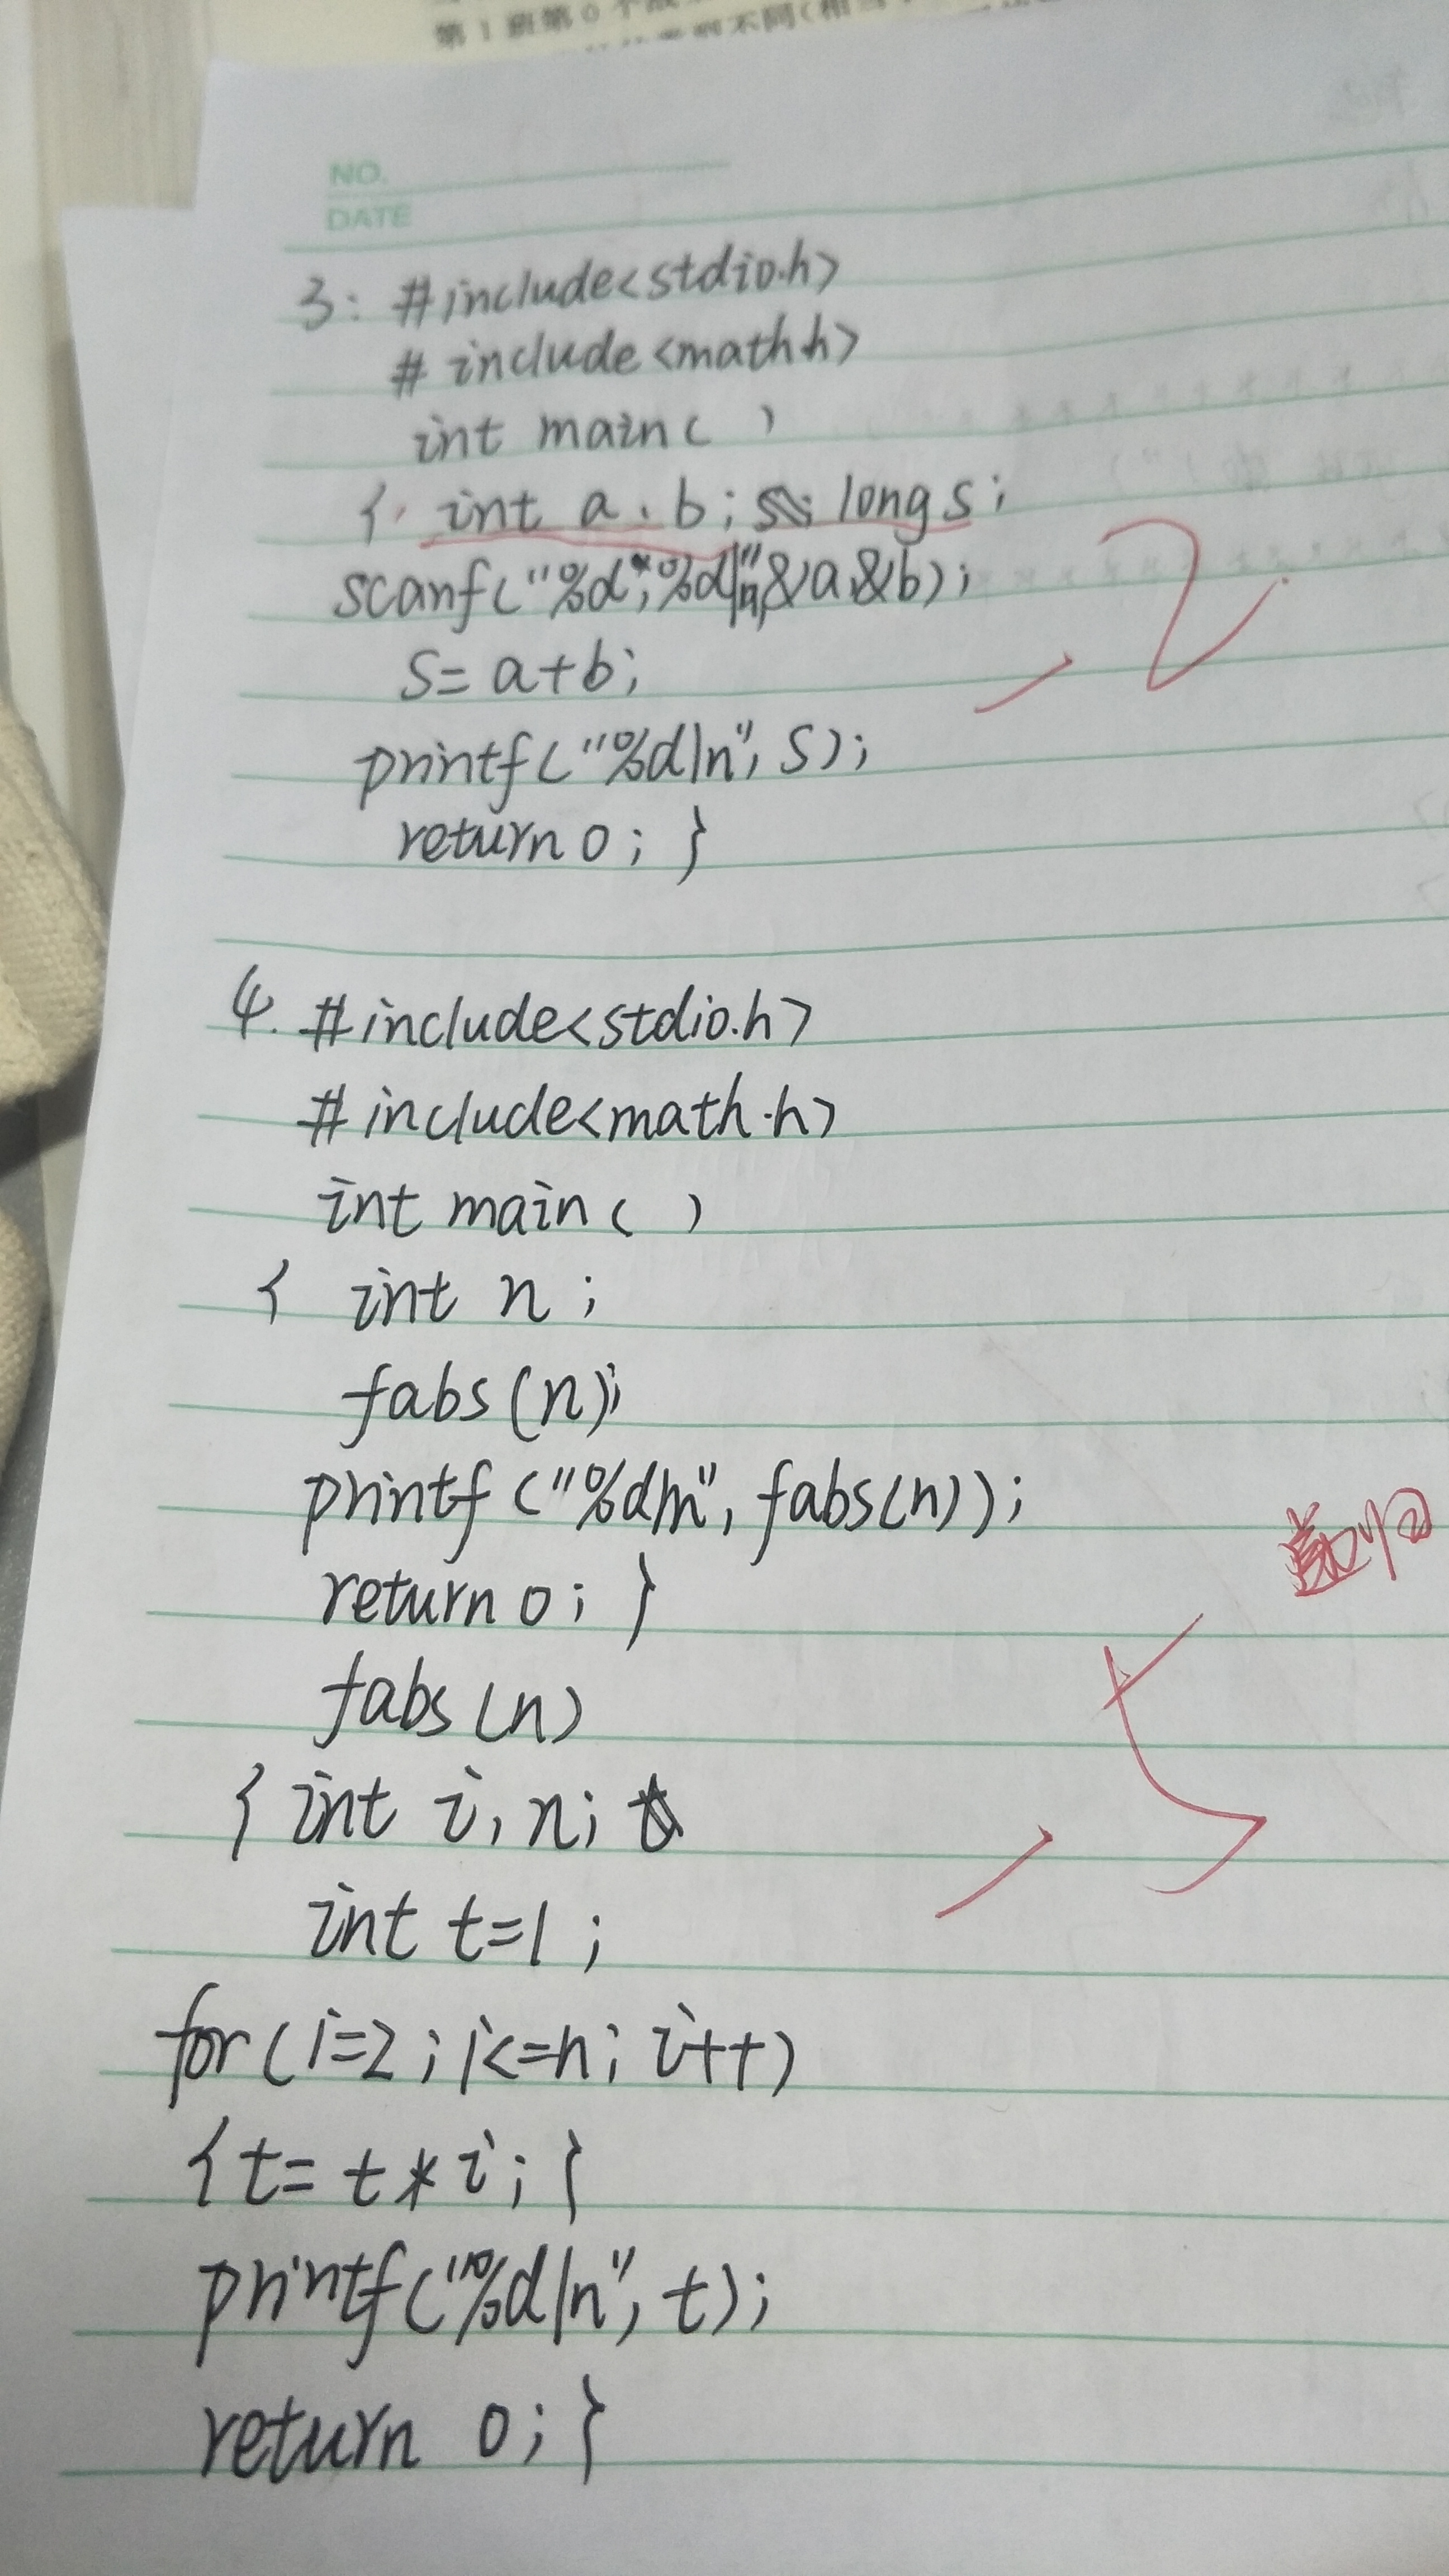 第1班第0个
不同(相当
NO.
DATE
3: #include<stdio.h>
#include<math.h>
int main( )
{ int a,b; long s;
scanf("%d,%d\n",&a,&b);
s=a+b;
printf("%d\n",s);
return 0; }
4. #include<stdio.h>
#include<math.h>
int main( )
{ int n;
fabs(n);
printf("%d\n",fabs(n));
return 0; }
fabs(n)
{ int i,n;
int t=1;
for(i=2;i<=n;i++)
{t=t*i;}
printf("%d\n",t);
return 0;}